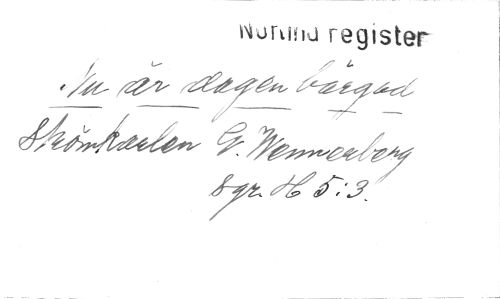 Norlind register
Nu är dagen bärgad
Skömkarlen G. Wennerberg
Sgr. H 5:3.